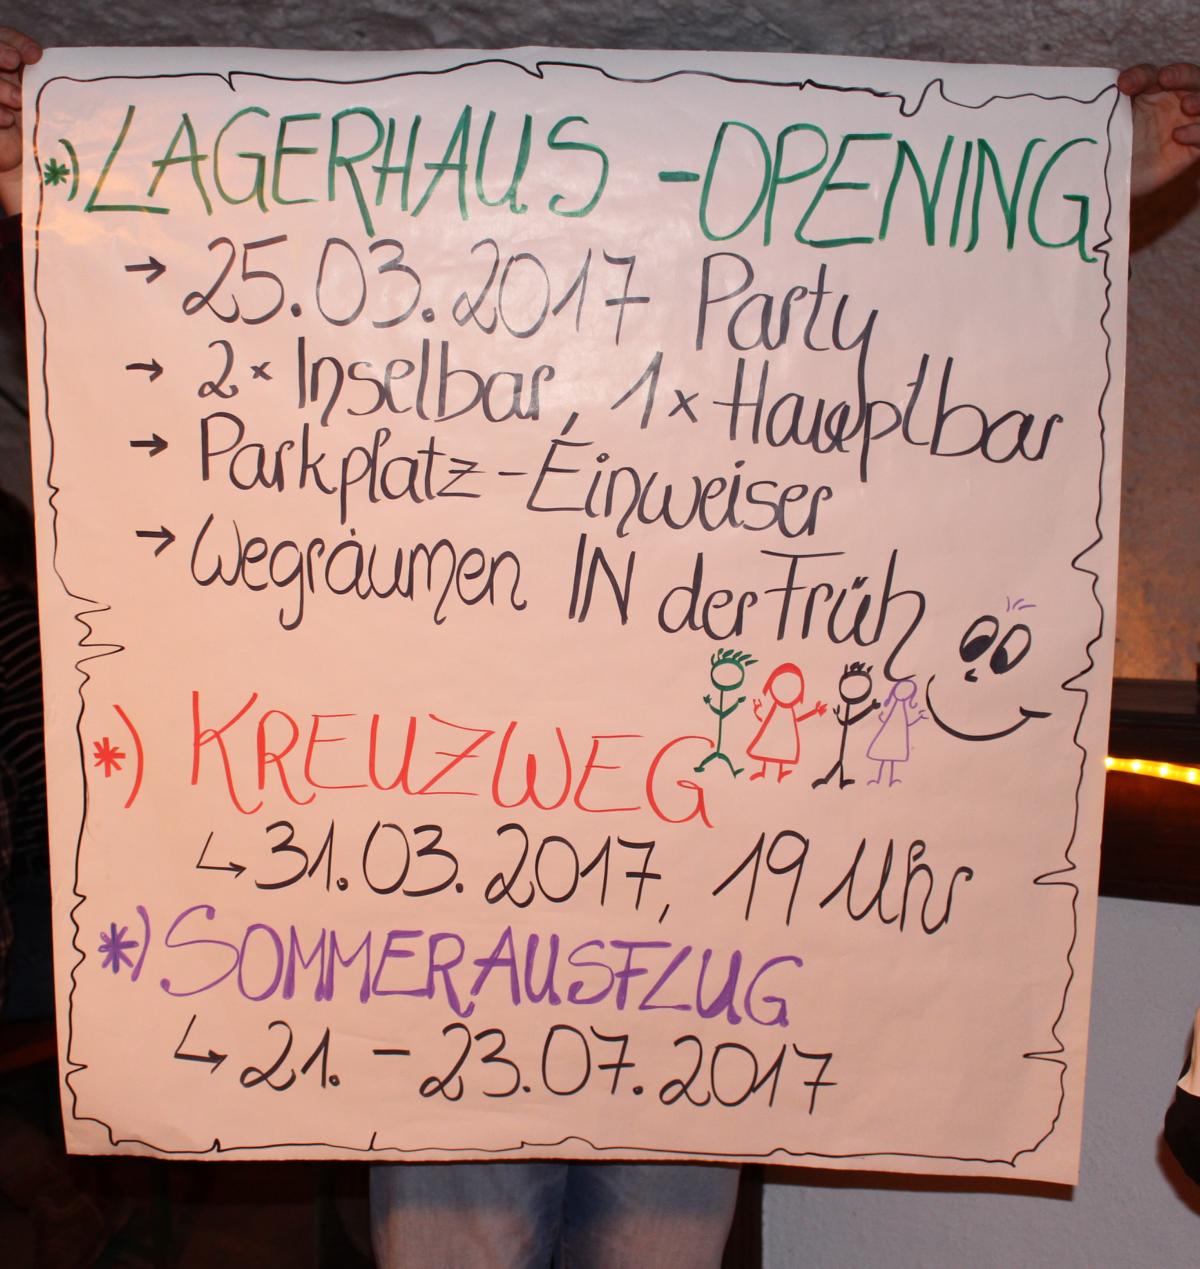 *) LAGERHAUS - OPENING
→ 25.03.2017 Party
→ 2x Inselbar, 1x Hauptbar
→ Parkplatz-Einweiser
→ Wegräumen IN der Früh
*) KREUZWEG
↳ 31.03.2017, 19 Uhr
*) SOMMERAUSFLUG
↳ 21. - 23.07.2017